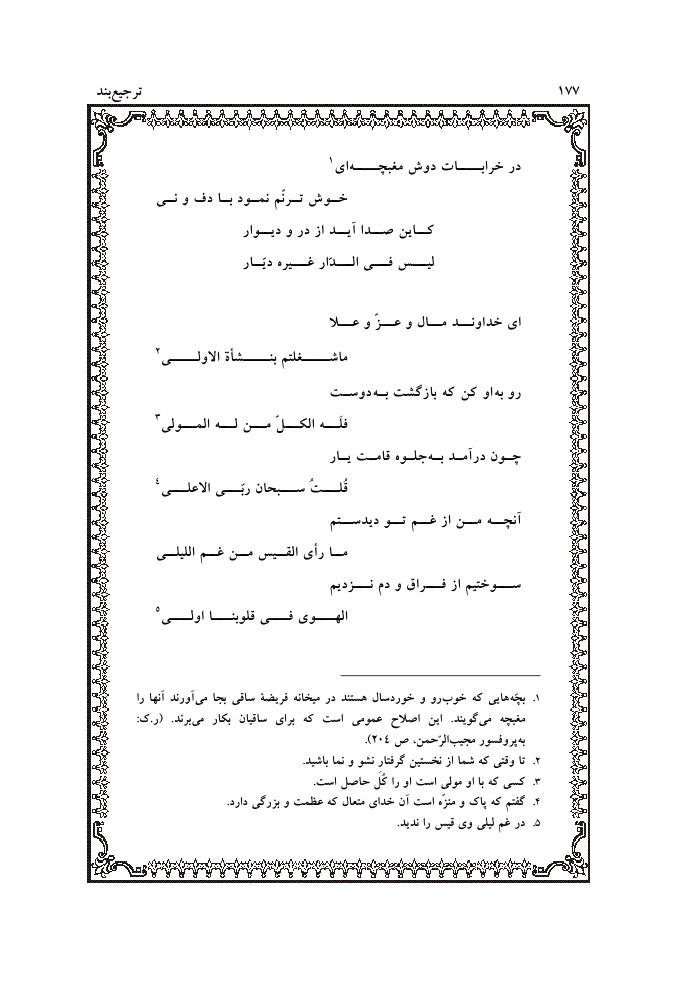 ۱۷۷ ترجیع‌بند
در خرابات دوش مغبچه‌ای۱
خوش ترنّم نمود با دف و نی
کاین صدا آید از در و دیوار
لیس فی الدّار غیره دیّار
ای خداوند مال و عزّ و علا
ماشغلتم بنشأة الاولی۲
رو به‌او کن که بازگشت به‌دوست
فلَه الکلّ من له المولی۳
چون درآمد به‌جلوه قامت یار
قُلتُ سبحان ربّی الاعلی۴
آنچه من از غم تو دیدستم
ما رأی القیس من غم اللیلی
سوختیم از فراق و دم نزدیم
الهوی فی قلوبنا اولی۵
۱. بچّه‌هایی که خوب‌رو و خوردسال هستند در میخانه فریضۀ ساقی بجا می‌آورند آنها را
مغبچه می‌گویند. این اصلاح عمومی است که برای ساقیان بکار می‌برند. (ر.ک:
به‌پروفسور مجیب‌الرّحمن، ص ۲۰۴).
۲. تا وقتی که شما از نخستین گرفتار نشو و نما باشید.
۳. کسی که با او مولی است او را کُل حاصل است.
۴. گفتم که پاک و منزّه است آن خدای متعال که عظمت و بزرگی دارد.
۵. در غم لیلی وی قیس را ندید.